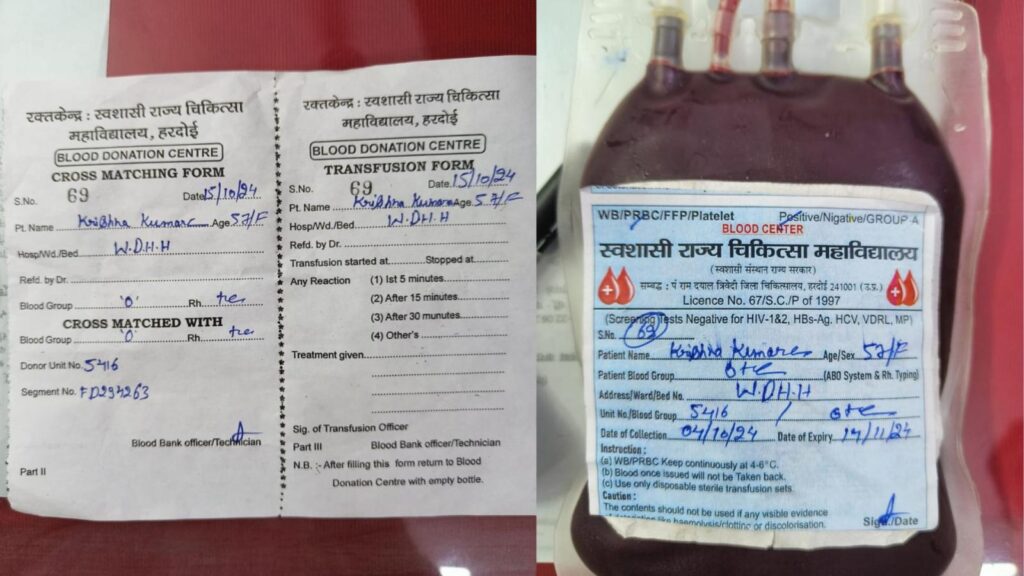 रक्तकेन्द्र : स्वशासी राज्य चिकित्सा
महाविद्यालय, हरदोई
BLOOD DONATION CENTRE
CROSS MATCHING FORM
S.No. 69 Date 15/10/24
Pt. Name Krishna Kumare Age 57/F
Hosp/Wd./Bed W.D.H.H
Refd. by Dr.
Blood Group 'O' Rh. +ve
CROSS MATCHED WITH
Blood Group 'O' Rh. +ve
Donor Unit No. 5416
Segment No. FD294263
Blood Bank officer/Technician
Part II
रक्तकेन्द्र : स्वशासी राज्य चिकित्सा
महाविद्यालय, हरदोई
BLOOD DONATION CENTRE
TRANSFUSION FORM
S.No. 69 Date 15/10/24
Pt. Name Krishna Kumare Age 57/F
Hosp/Wd./Bed W.D.H.H
Refd. by Dr.
Transfusion started at Stopped at
Any Reaction (1) Ist 5 minutes
(2) After 15 minutes
(3) After 30 munutes
(4) Other's
Treatment given
Sig. of Transfusion Officer
Part III Blood Bank officer/Technician
N.B. :- After filling this form return to Blood
Donation Centre with empty bottle.
WB/PRBC/FFP/Platelet Positive/Nigative/GROUP-A
BLOOD CENTER
स्वशासी राज्य चिकित्सा महाविद्यालय
(स्वशासी संस्थान राज्य सरकार)
सम्बद्ध : पं राम दयाल त्रिवेदी जिला चिकित्सालय, हरदोई 241001 (उ.प्र.)
Licence No. 67/S.C./P of 1997
(Screening Tests Negative for HIV-1&2, HBs-Ag. HCV, VDRL, MP)
S.No. 69
Patient Name Krishna Kumare Age/Sex 57/F
Patient Blood Group O+ve (ABO System & Rh. Typing)
Address/Ward/Bed No. W.D.H.H
Unit No/Blood Group 5416 / O+ve
Date of Collection 04/10/24 Date of Expiry 14/11/24
Instruction :
(a) WB/PRBC Keep continuously at 4-6°C.
(b) Blood once issued will not be Taken back.
(c) Use only disposable sterile transfusion sets.
Caution :
The contents should not be used if any visible evidence
of deterioration like haemolysis/clotting or discolorisation. Sign./Date